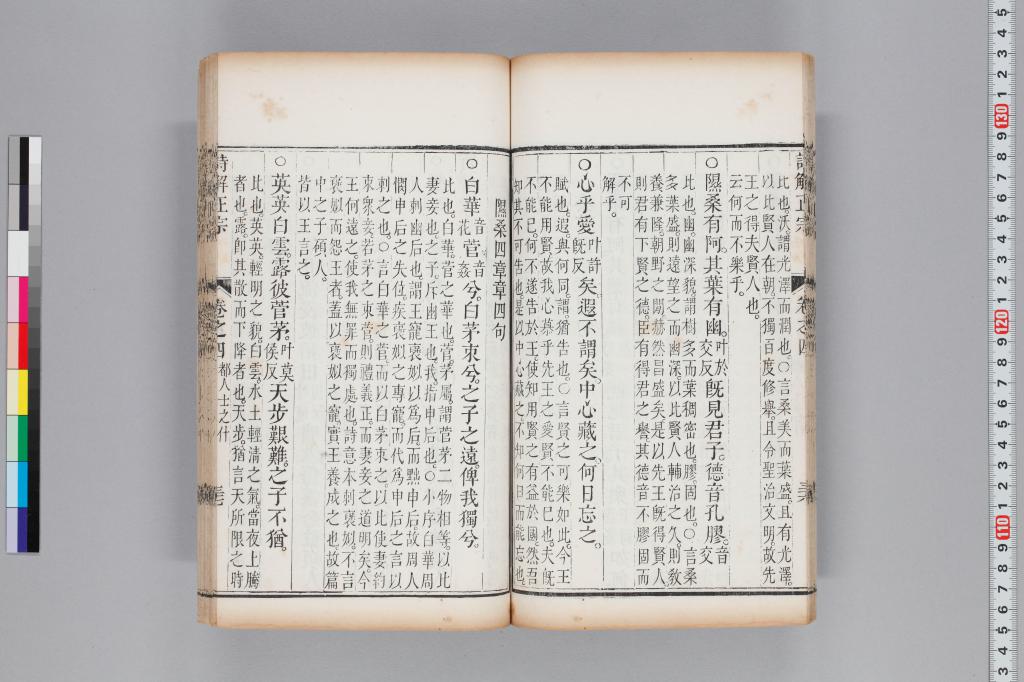 比也。沃謂光澤而潤也。○言桑美而葉盛。且有光澤。
以比賢人在朝不獨百度修舉。且令聖治文明。故先
王之得夫賢人也。
云何而不樂乎。
○隰桑有阿。其葉有幽。叶於交反既見君子。德音孔膠。音交
比也。幽幽深貌謂樹多而葉稠密也。膠固也。○言桑
多葉盛則遠望之而幽深以比賢人輔治之久則教
養兼隆。朝野之間赫然昌盛矣是以先王旣得賢人
則君有下賢之德臣有得君之譽其德音不膠固而
不可
解乎。
○心乎愛叶許旣反矣。遐不謂矣。中心藏之。何日忘之。
賦也。遐與何同。謂猶告也。○言賢之可樂如此。今王
不能用賢故我心慕乎先王之愛賢不能已也。夫旣
不能已。何不遂告於王使知用賢之有益於國然吾
知其不可告也。是以中心藏之不知何日而能忘也。
隰桑四章章四句
○白華音花菅音姦兮。白茅束兮。之子之遠。俾我獨兮。
比也。白華菅之華也。菅茅屬。謂菅茅二物相等。以比
妻妾也。之子。斥幽王也。我指申后也。○小序白華周
人刺幽后也。謂王寵褒姒以爲后。而黜申后。故周人
憫申后之失位。疾褒姒之專寵。而代爲申后之言以
刺之也。○言白華之菅。而以白茅束之。以此使妻約
束衆妾。若茅之束菅。則禮義正。而妻妾之道明矣。今
王何遠之。使我無罪而獨處也。詩意本刺褒姒。不言
褒姒而怨王者。蓋以褒姒之寵。實王養成之也。故篇
中之子碩人。
皆以王言之。
○英英白雲。露彼菅茅。叶莫侯反天步艱難。之子不猶。
比也。英英。輕明之貌。白雲。水土輕清之氣。當夜上騰
者也。露。即其散而下降者也。天步。猶言天所限之時
詩解正宗
卷之四
都人士之什